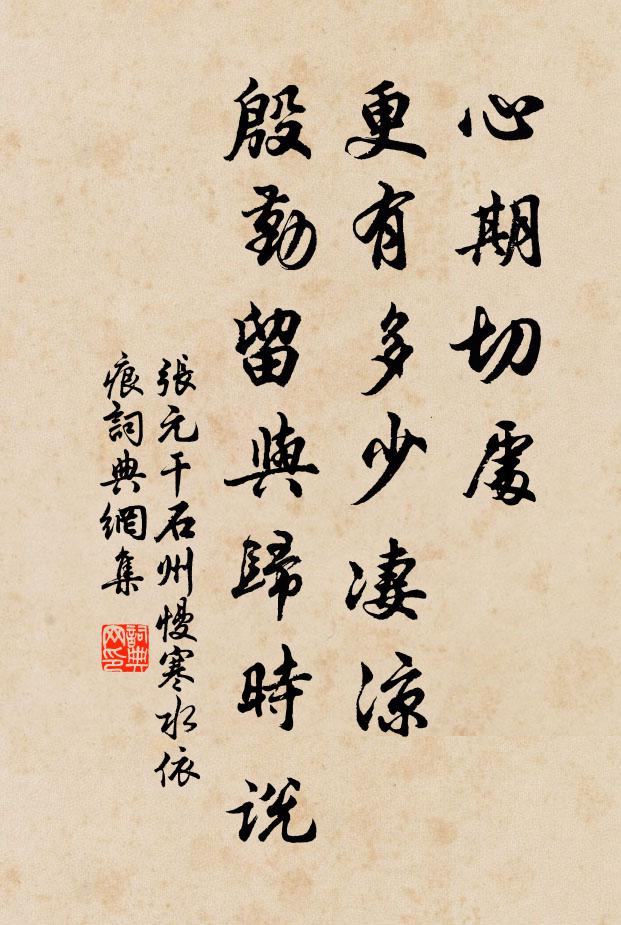 心期切處
更有多少凄涼
殷勤留與歸時說
張元干石州慢寒水依
痕詞典網集
詞典
网印